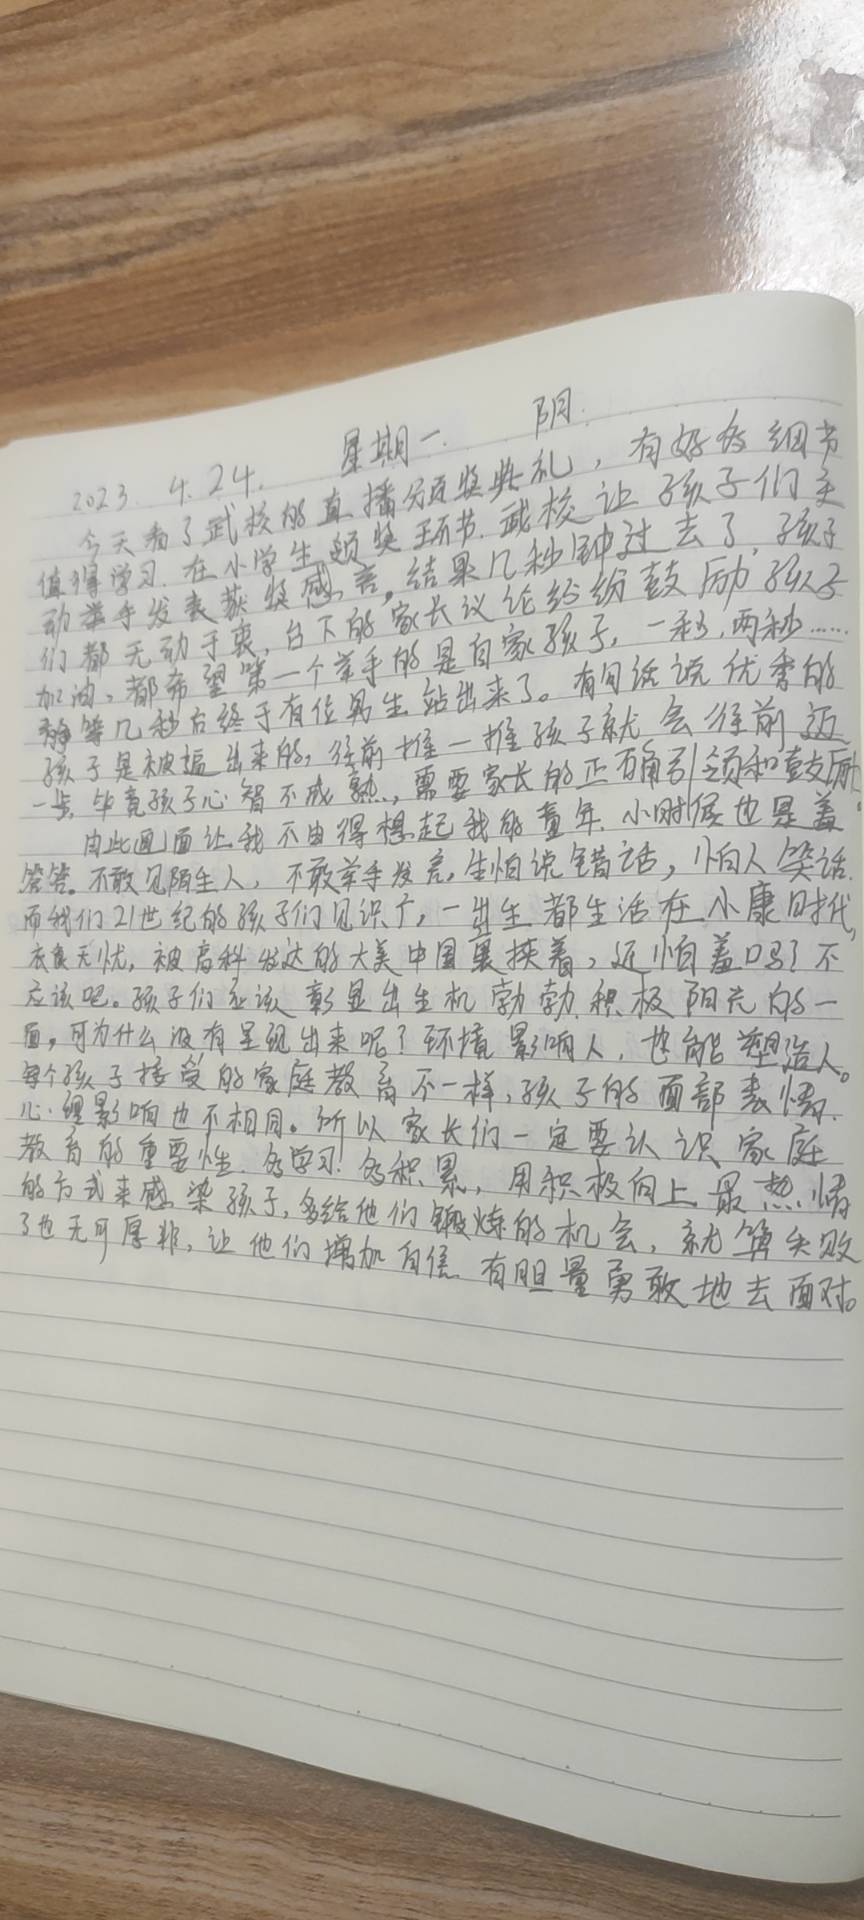 2023. 4. 24. 星期一. 阴.
今天看了武校的直播颁奖典礼，有好多细节
值得学习.在小学生颁奖环节.武校让孩子们主
动举手发表获奖感言。结果几秒钟过去了，孩子
们都无动于衷，台下的家长议论纷纷鼓励孩子
加油，都希望第一个举手的是自家孩子，一秒，两秒……
静等几秒后终于有位男生站出来了。有句话说优秀的
孩子是被逼出来的，往前推一推孩子就会往前迈
一步.毕竟孩子心智不成熟，需要家长的正确引领和鼓励。
由此画面让我不由得想起我的童年.小时候也是羞
答答。不敢见陌生人，不敢举手发言，生怕说错话，怕人笑话.
而我们21世纪的孩子们见识广，一出生都生活在小康时代，
衣食无忧，被高科发达的大美中国裹挟着，还怕羞吗？不
应该吧。孩子们应该彰显出生机勃勃.积极阳光的一
面，可为什么没有呈现出来呢？环境影响人，也能塑造人。
每个孩子接受的家庭教育不一样，孩子的面部表情.
心理影响也不相同。所以家长们一定要认识家庭
教育的重要性.多学习.多积累，用积极向上最热情
的方式来感染孩子，多给他们锻炼的机会，就算失败
了也无可厚非，让他们增加自信.有胆量勇敢地去面对。